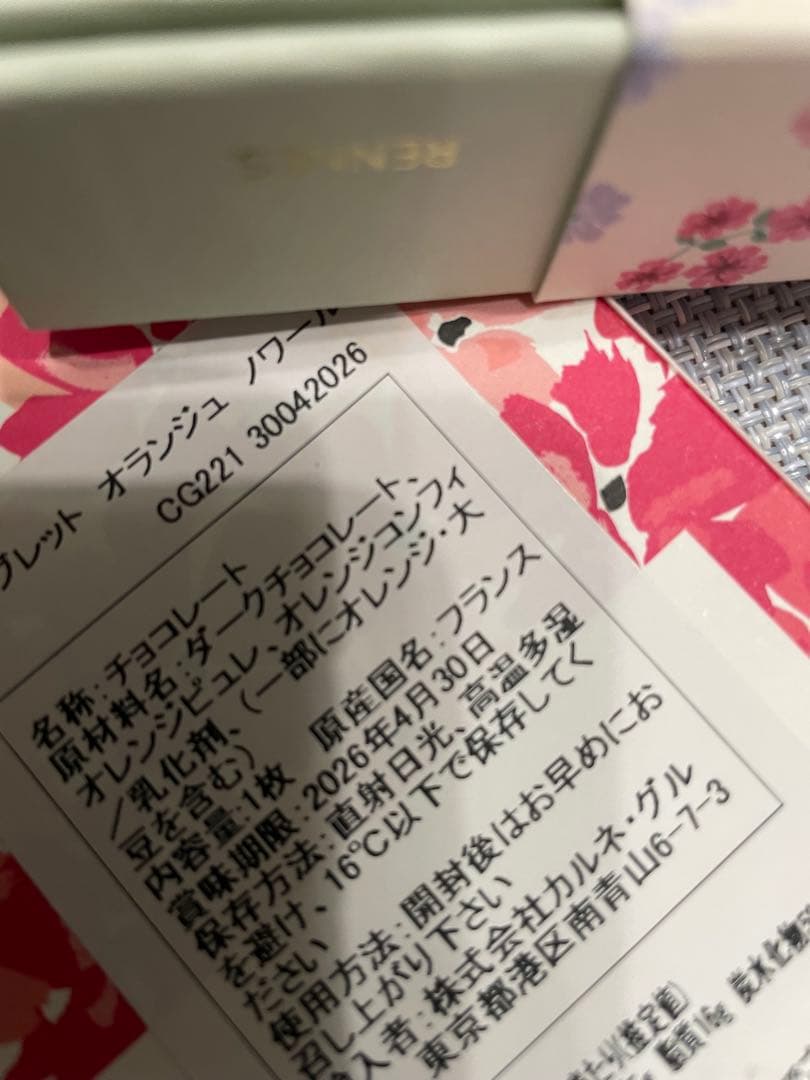 RENNES
ブレット オランジュ ノワール
CG221 30042026
名称:チョコレート
原材料名:ダークチョコレート、
オレンジピュレ、オレンジコンフィ
/乳化剤、(一部にオレンジ・大
豆を含む)
内容量:1枚 原産国名:フランス
賞味期限:2026年4月30日
保存方法:直射日光、高温多湿
を避け、16℃以下で保存してく
ださい
使用方法:開封後はお早めにお
召し上がり下さい
輸入者:株式会社カルネ・グル
東京都港区南青山6-7-3
たり(推定値)
脂質16g 炭水化物